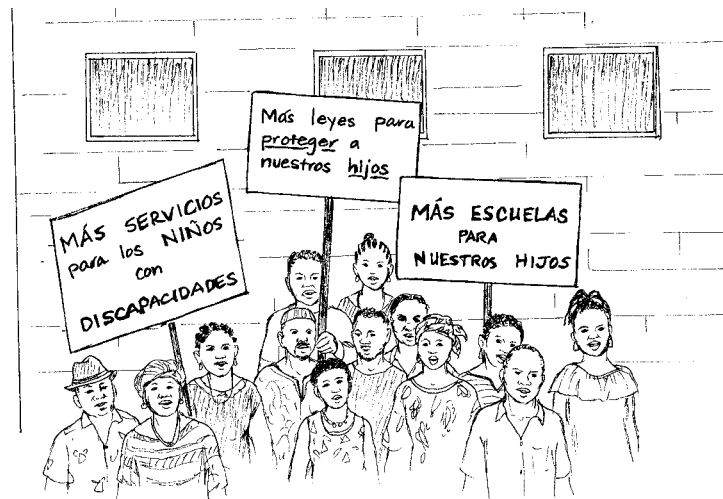 MÁS SERVICIOS
para los NIÑOS
con
DISCAPACIDADES
Más leyes para
proteger a
nuestros hijos
MÁS ESCUELAS
PARA
NUESTROS HIJOS